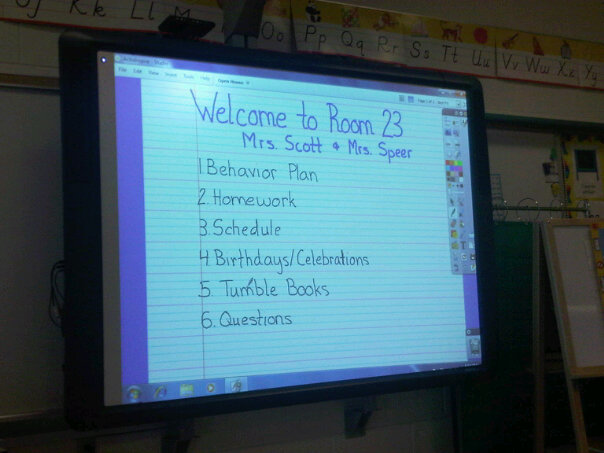 Kk Ll Mm Oo Pp Qq Rr Ss Tt Uu Vv Ww Xx Yy
ActivInspire - Studio
File Edit View Insert Tools Help
Welcome to Room 23
Mrs. Scott & Mrs. Speer
1. Behavior Plan
2. Homework
3. Schedule
4. Birthdays/Celebrations
5. Tumble Books
6. Questions